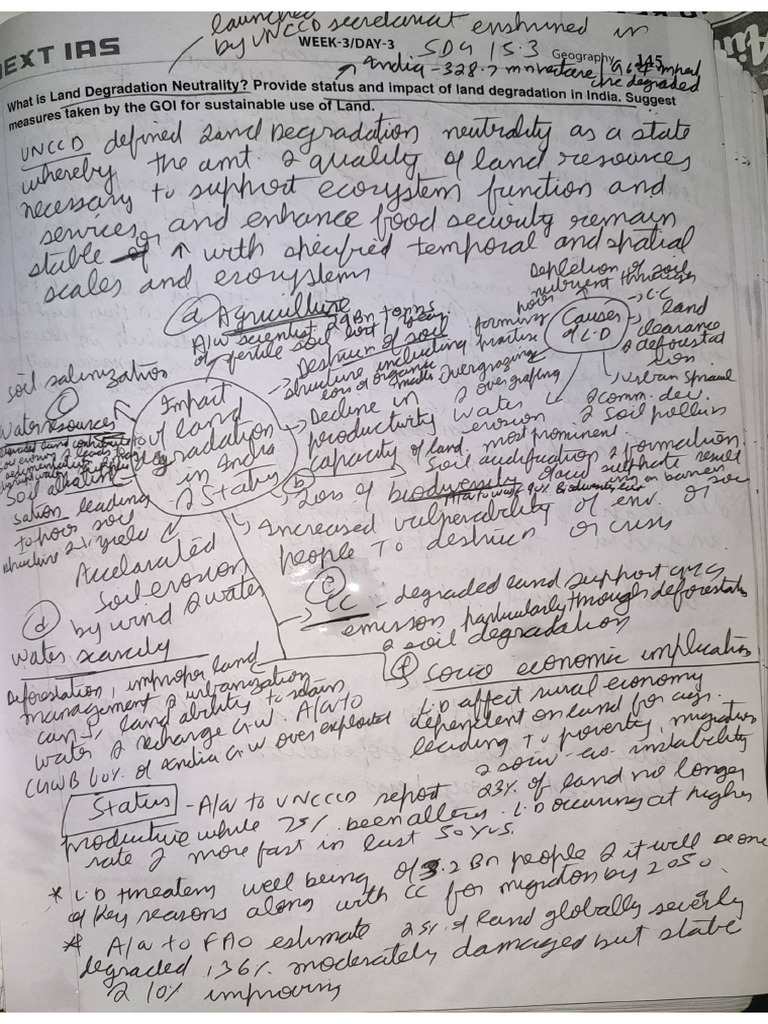 launched
by UNCCD secretariat enshrined in
SDG 15.3
NEXT IAS
WEEK-3/DAY-3
Geography
145
India - 328.7 mn hectare / 96.4 mn
are degraded
What is Land Degradation Neutrality? Provide status and impact of land degradation in India. Suggest
measures taken by the GOI for sustainable use of Land.
UNCCD defined Land Degradation neutrality as a state
whereby the amt. & quality of land resources
necessary to support ecosystem function and
services and enhance food security remain
stable or ↑ with specified temporal and spatial
scales and ecosystems
(a) Agriculture
A/a scientist 24 Bn tonns
of fertile soil lost / year
Impact
of land
degradation
in India
& Status
→ Destrucn of soil
structure including
loss of organic
matter
→ Decline in
productivity
capacity of land
(b)
→ Loss of biodiversity
→ Increased vulnerability of env. or soc
people to destrucn or crisis
Causes
of L.D
Depletion of soil
nutrient through
poor
farming
practise
→ C.C
→ land
clearance
& deforesta
tion
→ urban sprawl
& comm. dev.
& soil pollun
Overgrazing
& overgrafting
Water
erosion
most prominent.
Soil acidification & formation
of acid sulphate result
in barren
soil
soil salinization
(c)
Water resources
Soil alkalini
sation leading
to poor soil
structure & ↓ yield
Accelarated
soil erosion
by wind & water
(d)
Water scarcity
Deforestation, improper land
management & urbanization
can ↓ land ability to retain
water & recharge G.W. A/a to
CGWB 60% of India G.W over exploited
(e)
CC - degraded land support GHG
emission particularly through deforestatn
& soil degradation
(f) Socio economic implication
L.D affect rural economy
dependent on land for agri.
leading to poverty, migration
& socio-eco. instability
Status - A/a to UNCCD report 23% of land no longer
productive while 75% been altern. L.D occuring at higher
rate & more fast in last 50 yrs.
* L.D threatens well being of 3.2 Bn people & it will be one
of key reasons along with CC for migration by 2050
* A/a to FAO estimate 25% of land globally severly
degraded, 36% moderately damaged but stable
& 10% improving